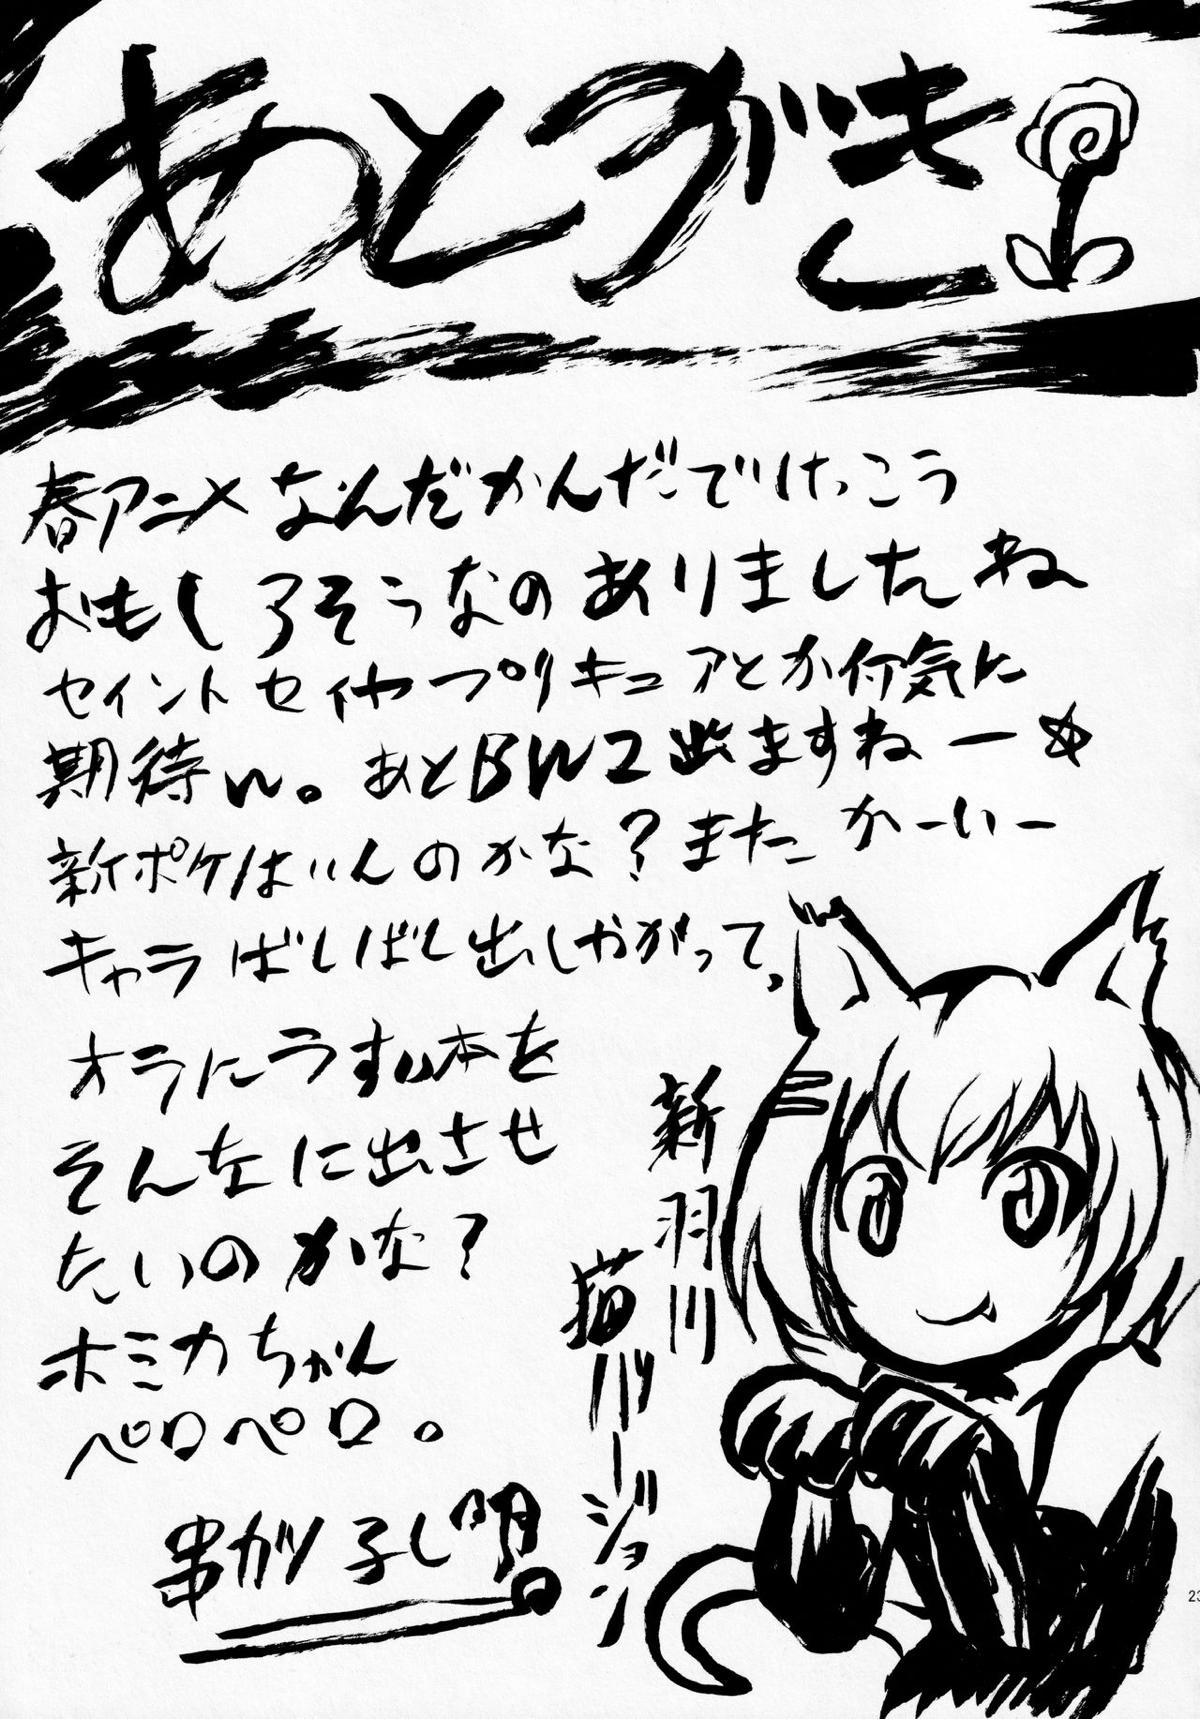 あとがき
春アニメなんだかんだでけっこう
おもしろそうなのありましたね
セイントセイヤプリキュアとか何気に
期待w。あとBW2出ますねー☆
新ポケはいんのかな?またかーいー
キャラばしばし出しやがって。
オラにうすい本を
そんなに出させ
たいのかな?
ホミカちゃん
ペロペロ。
串カツ孔し明
新羽川
猫バージョン
23